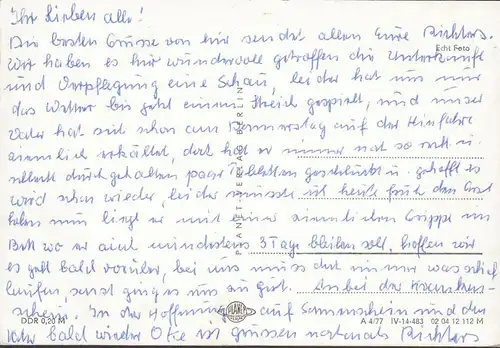 Ihr Lieben alle!
Die besten Grüsse von hir sendet allen Eure Richters
Echt Foto
Wir haben es hir wundervoll getroffen die Unterkunft
und Verpflegung eine Schau, leider hat uns nur
das Wetter bis jetzt einen Streich gespielt, und unser
Vater hat sich schon am Donnerstag auf der Hinfahrt
ziemlich erkältet, dort hat er immer nat so recht u.
selbst durchgehalten paar Tabletten geschluckt u. gehofft es
wird schon wieder, leider musste ich heute früh den Arzt
holen nun liegt er mit einer ziemlichen Grippe im
Bett wo er auch mindestens 3 Tage bleiben soll, hoffen wir
es geht bald vorüber, bei uns muss dort immer was schief
laufen sonst ging es uns zu gut. Anbei der Krankenschein.
In der Hoffnung auf Sonnenschein und das
Vater bald wieder Oke ist grüssen nochmals Richters
PLANET-VERLAG BERLIN
PLANET
DDR 0,20 M
A 4/77 IV-14-483 02 04 12 112 M